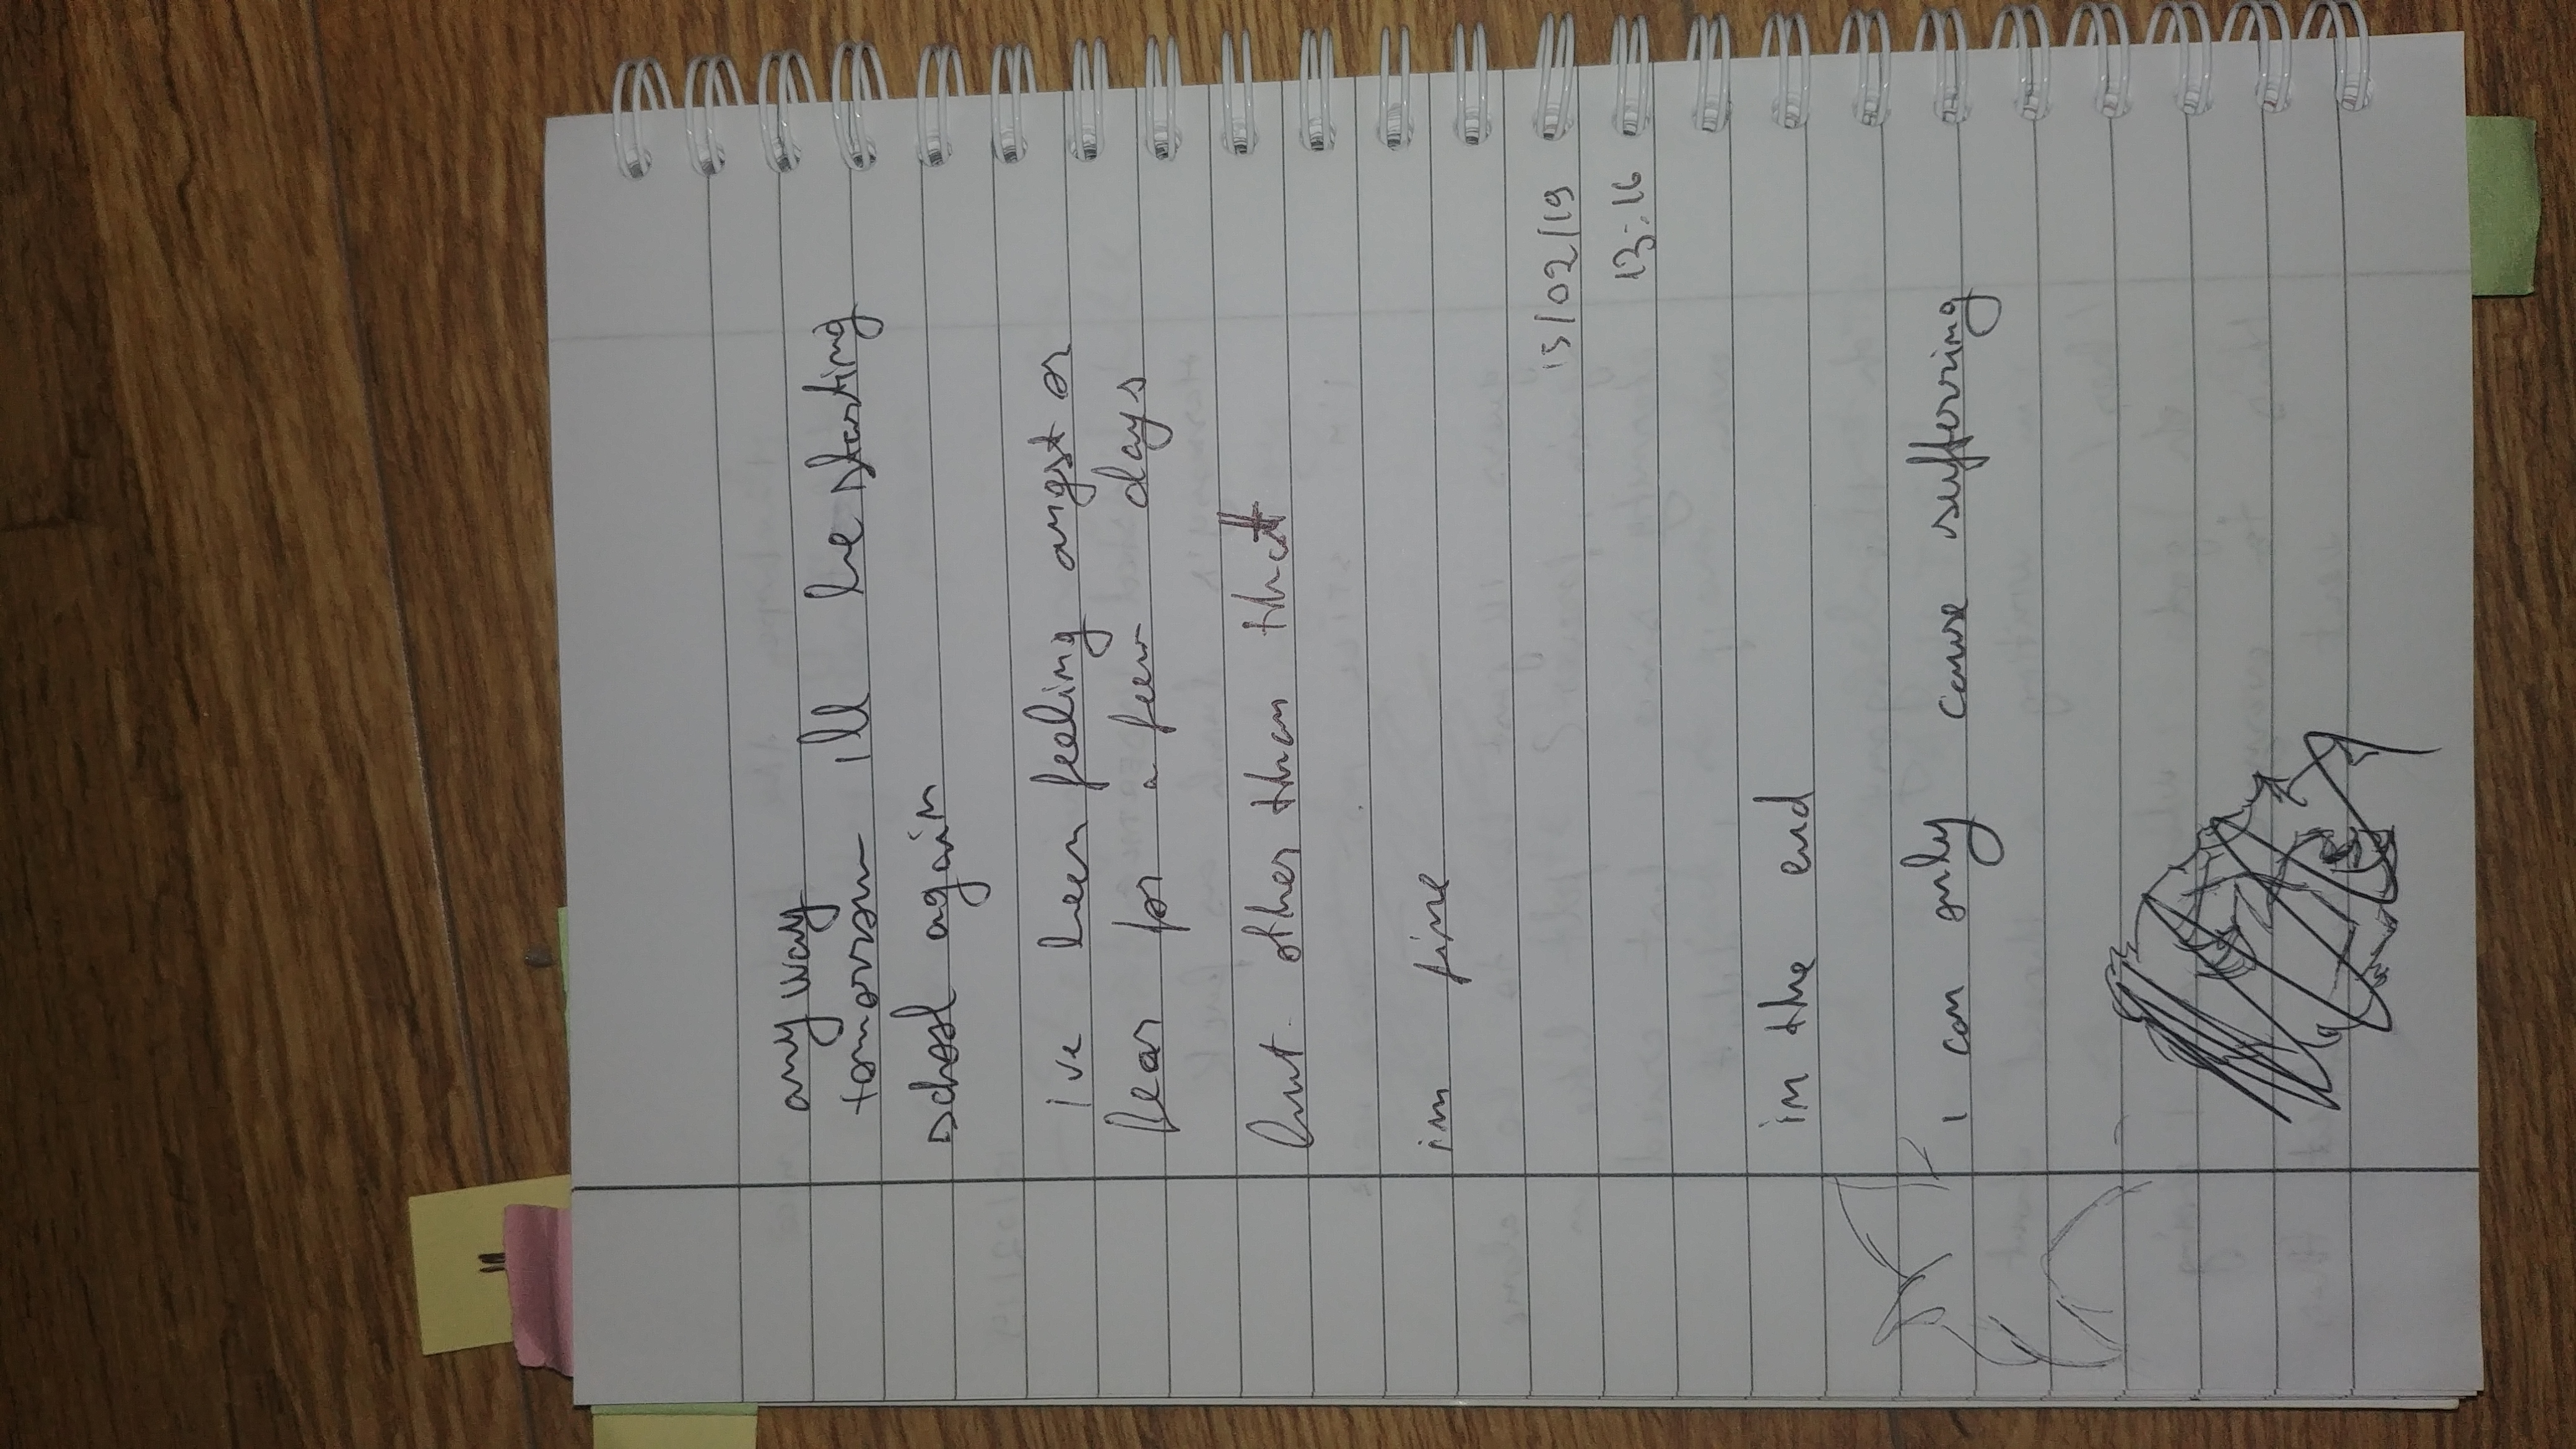 anyway
tomorrow ill be starting
school again
ive been feeling angst or
fear for a few days
but other than that
im fine
15/02/19
13:16
in the end
i can only cause sufferring